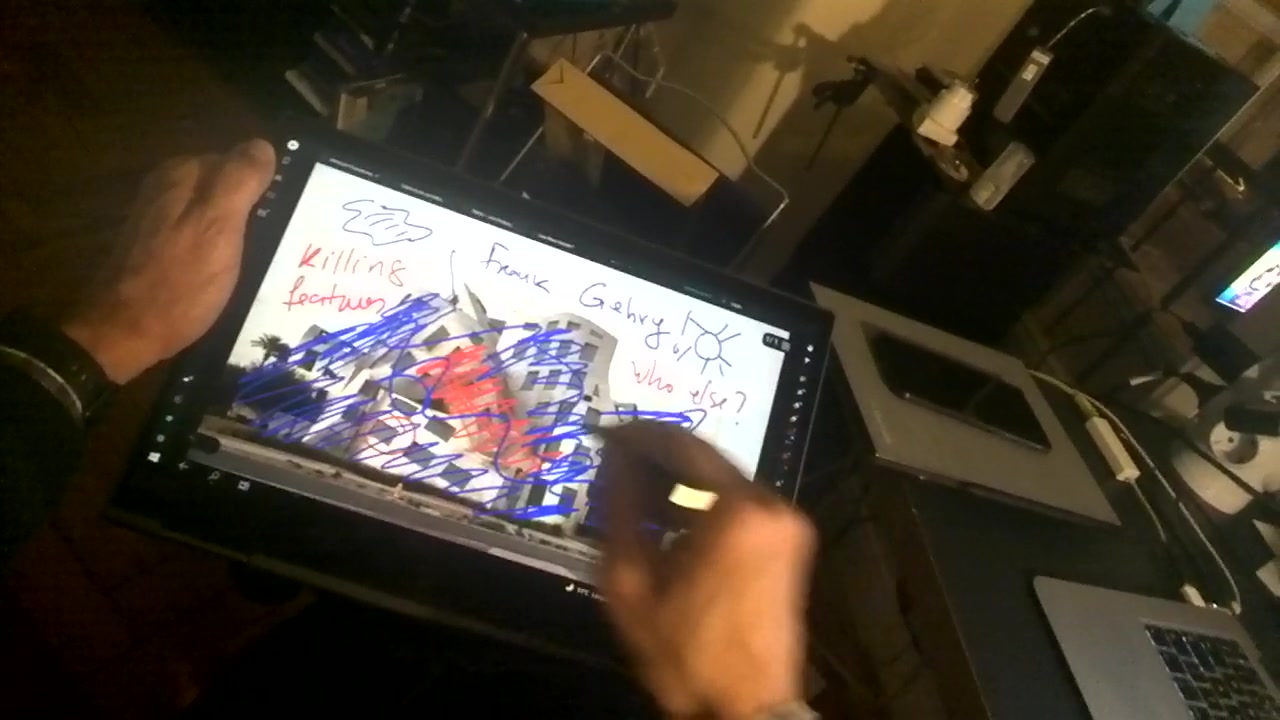 Killing
features
Frank Gehry!
Who else?